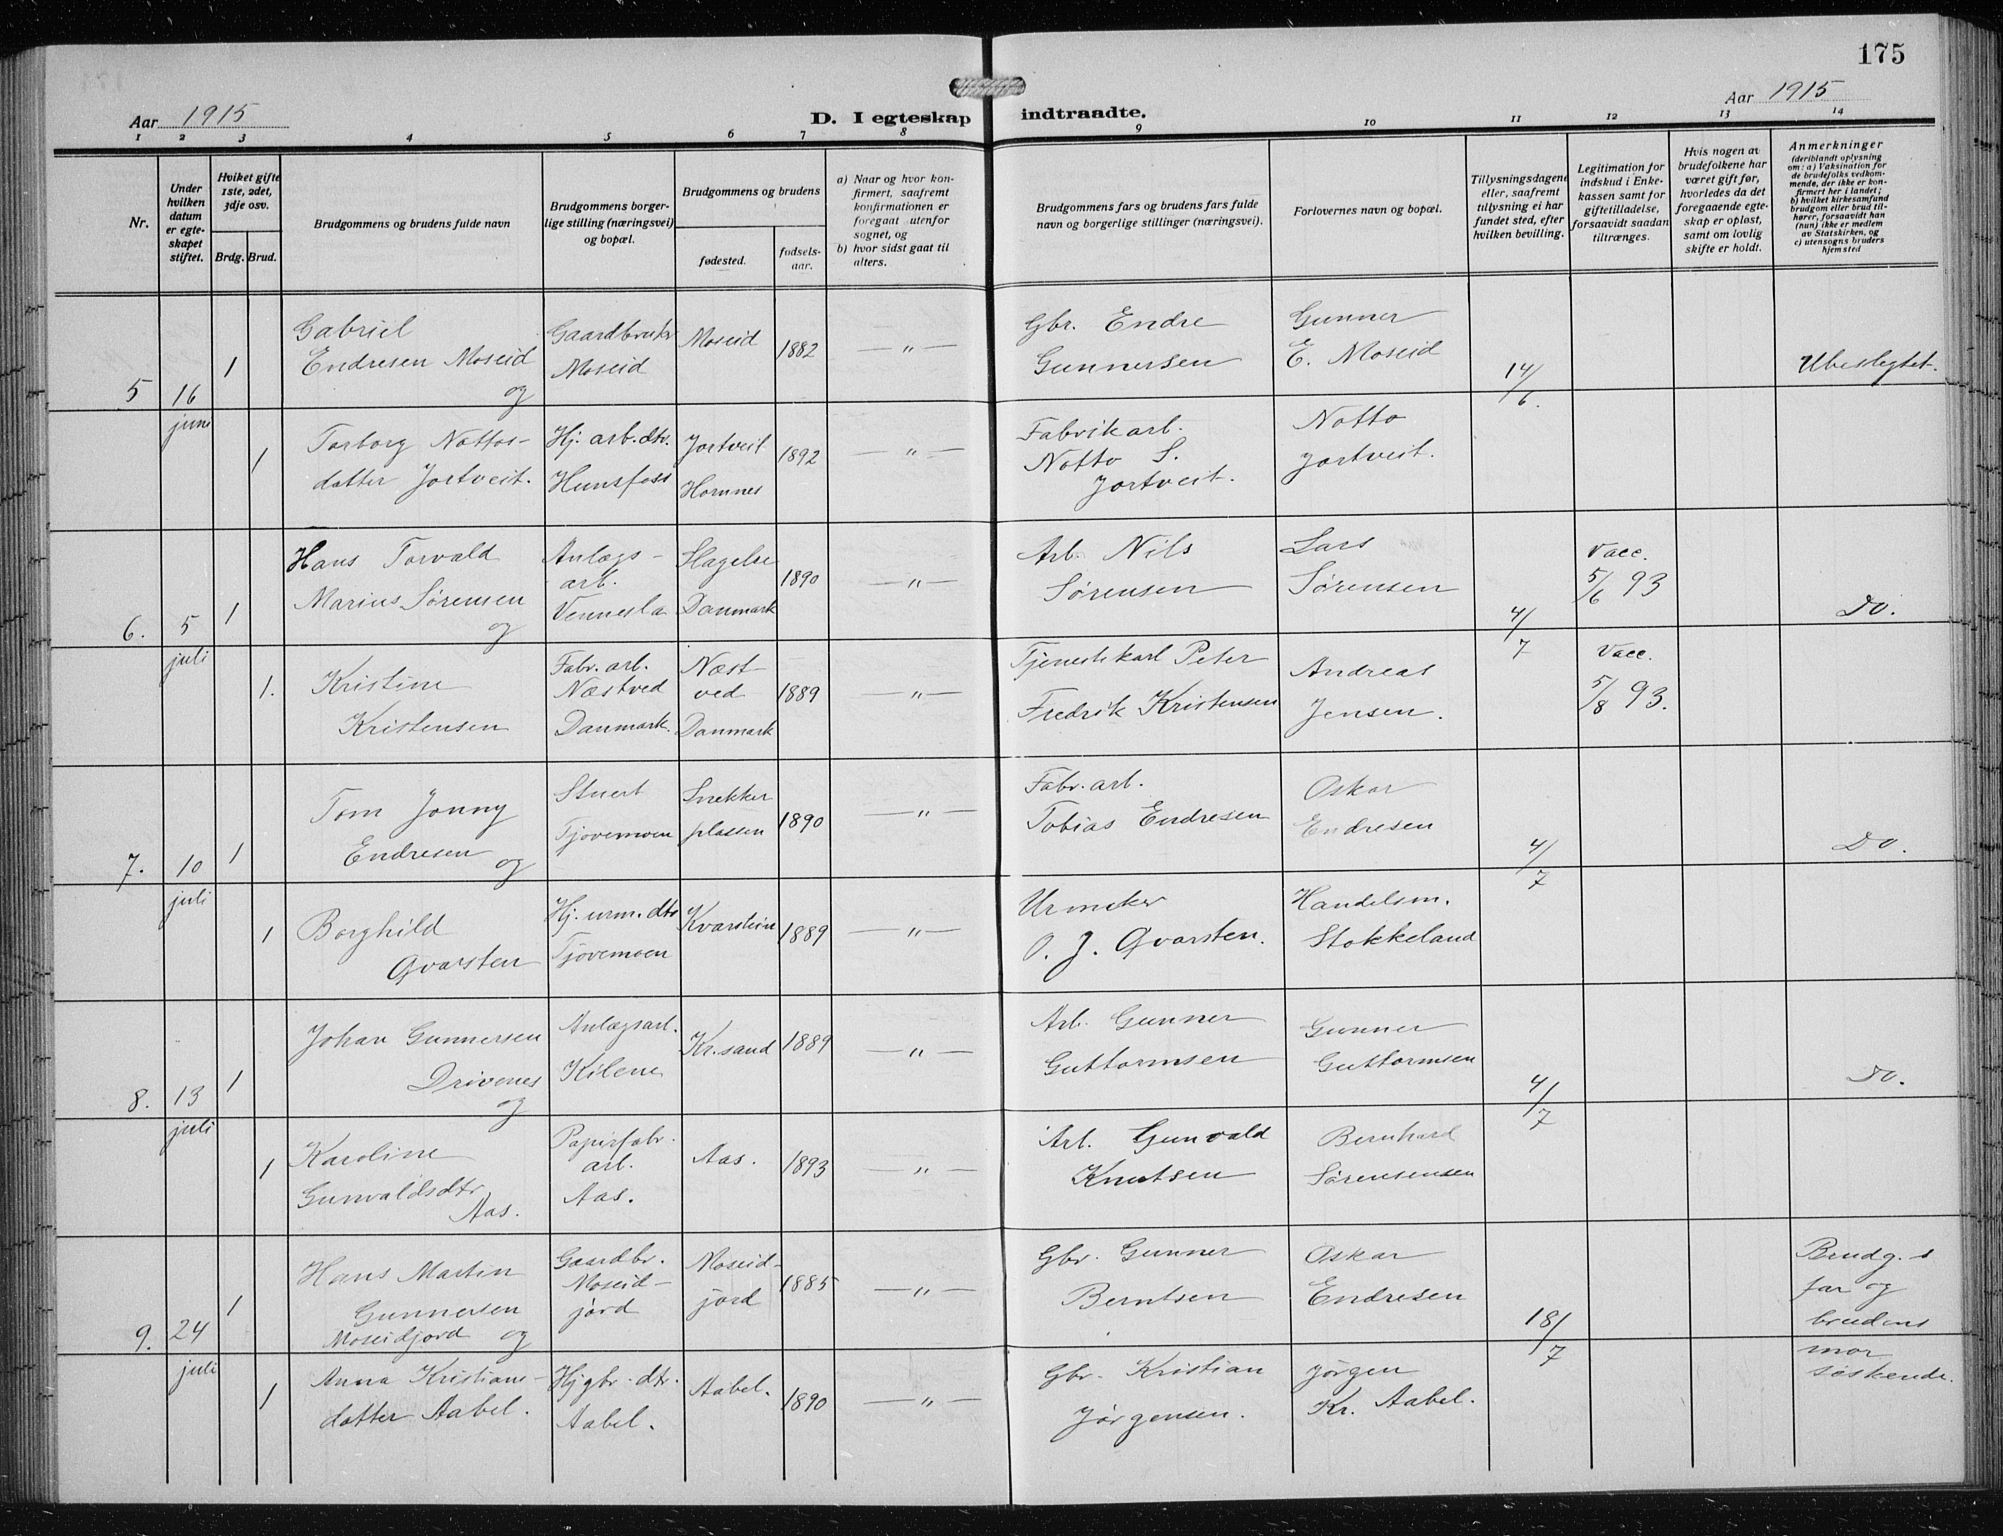 175
Aar 1915
D. I egteskap indtraadte.
Aar 1915
1 2 3 4 5 6 7 8 9 10 11 12 13 14
Nr.
Under hvilken datum er egteskapet stiftet.
Hviket gifte 1ste, 2det, 3dje osv.
Brdg. Brud.
Brudgommens og brudens fulde navn
Brudgommens borgerlige stilling (næringsvei) og bopæl.
Brudgommens og brudens
fødested.
fødselsaar.
a) Naar og hvor konfirmert, saafremt konfirmationen er foregaat utenfor sognet, og
b) hvor sidst gaat til alters.
Brudgommens fars og brudens fars fulde navn og borgerlige stillinger (næringsvei).
Forlovernes navn og bopæl.
Tillysningsdagene eller, saafremt tillysning ei har fundet sted, efter hvilken bevilling.
Legitimation for indskud i Enkekassen samt for giftetilladelse, forsaavidt saadan tiltrænges.
Hvis nogen av brudefolkene har været gift før, hvorledes da det foregaaende egteskap er opløst, samt om lovlig skifte er holdt.
Anmerkninger
(deriblandt oplysning om: a) Vaksination for de brudefolks vedkommende, der ikke er konfirmert her i landet; b) hvilket kirkesamfund brudgom eller brud tilhører, forsaavidt han (hun) ikke er medlem av Statskirken, og c) utensogns bruders hjemsted
5 16 juni 1
Gabriel
Endresen Moseid
og
Gaardbruker
Moseid
Moseid
1882
— " —
Gbr. Endre
Gunnersen
Gunner
E. Moseid
14/6.
Ubeslegtet.
1
Torborg Nottos-
datter Jortveit.
Hj. arb. dtr.
Hunsfoss
Jortveit
Hornnes
1892
— " —
Fabrikarb.
Notto S.
Jortveit.
Notto
Jortveit.
6. 5 juli 1
Hans Torvald
Marius Sørensen
og
Anlægs-
arb.
Vennesla
Slagelse
Danmark
1890
— " —
Arb. Nils
Sørensen
Lars
Sørensen
4/7
Vacc.
5/6 93
Do.
1.
Kristine
Kristensen
Fabr. arb.
Næstved
Danmark.
Næst-
ved
Danmark
1889
— " —
Tjenestekarl Peter
Fredrik Kristensen
Andreas
Jensen.
Vacc.
5/8 93.
7. 10 juli 1
Tom Jonny
Endresen og
Stuert
Tjovemoen
Snekker
plassen
1890
— " —
Fabr. arb.
Tobias Endresen
Oskar
Endresen
4/7
Do.
1
Borghild
Qvarsten
Hj. urm. dtr
Tjovemoen
Kvarstein
1889
— " —
Urmaker
O. J. Qvarsten.
Handelsm.
Stokkeland
8. 13 juli 1
Johan Gunnersen
Drivenes
og
Anlægsarb.
Kilene
Kr.sand
1889
— " —
Arb. Gunner
Guttormsen
Gunner
Guttormsen
4/7
Do.
1
Karoline
Gunvaldsdtr.
Aas.
Papirfabr.
arb.
Aas.
Aas.
1893
— " —
Arb. Gunvald
Knutsen
Bernhard
Sørensensen
9. 24 juli 1
Hans Martin
Gunnersen
Moseidjord og
Gaardbr.
Moseid-
jord
Moseid-
jord
1885
— " —
Gbr. Gunner
Berntsen
Oskar
Endresen
18/7
Brudg.s
far og
brudens
mor
søskende.
1
Anna Kristians-
datter Aabel.
Hj gbr. dtr.
Aabel.
Aabel.
1890
— " —
Gbr. Kristian
Jørgensen.
Jørgen
Kr. Aabel.